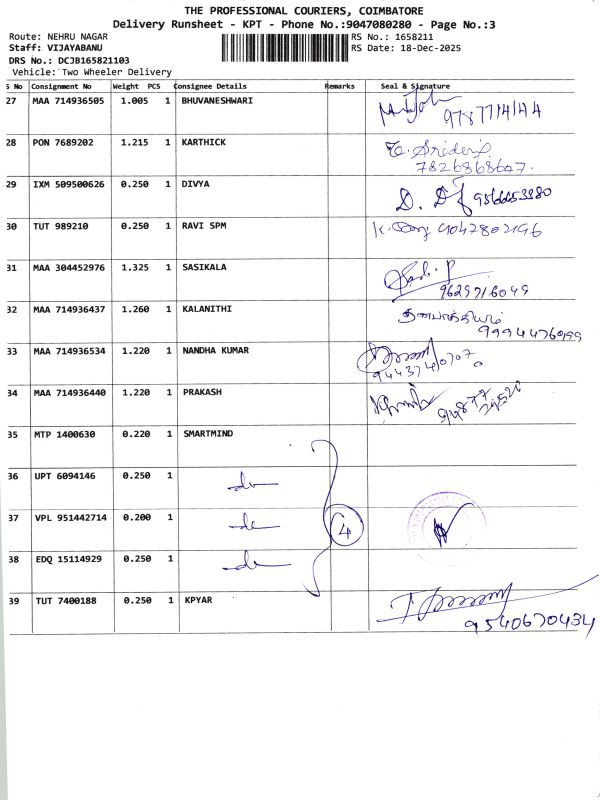 THE PROFESSIONAL COURIERS, COIMBATORE
Delivery Runsheet - KPT - Phone No.:9047080280 - Page No.:3
Route: NEHRU NAGAR RS No.: 1658211
Staff: VIJAYABANU RS Date: 18-Dec-2025
DRS No.: DCJB165821103
Vehicle: Two Wheeler Delivery
S No Consignment No Weight PCS Consignee Details Remarks Seal & Signature
27 MAA 714936505 1.005 1 BHUVANESHWARI
28 PON 7689202 1.215 1 KARTHICK
7826868607.
29 IXM 509500626 0.250 1 DIVYA D.
30 TUT 989210 0.250 1 RAVI SPM 9042802196
31 MAA 304452976 1.325 1 SASIKALA
9629716049
32 MAA 714936437 1.260 1 KALANITHI
33 MAA 714936534 1.220 1 NANDHA KUMAR
9443740707
34 MAA 714936440 1.220 1 PRAKASH
35 MTP 1400630 0.220 1 SMARTMIND
36 UPT 6094146 0.250 1
37 VPL 951442714 0.200 1 4
38 EDQ 15114929 0.250 1
39 TUT 7400188 0.250 1 KPYAR
9540670434